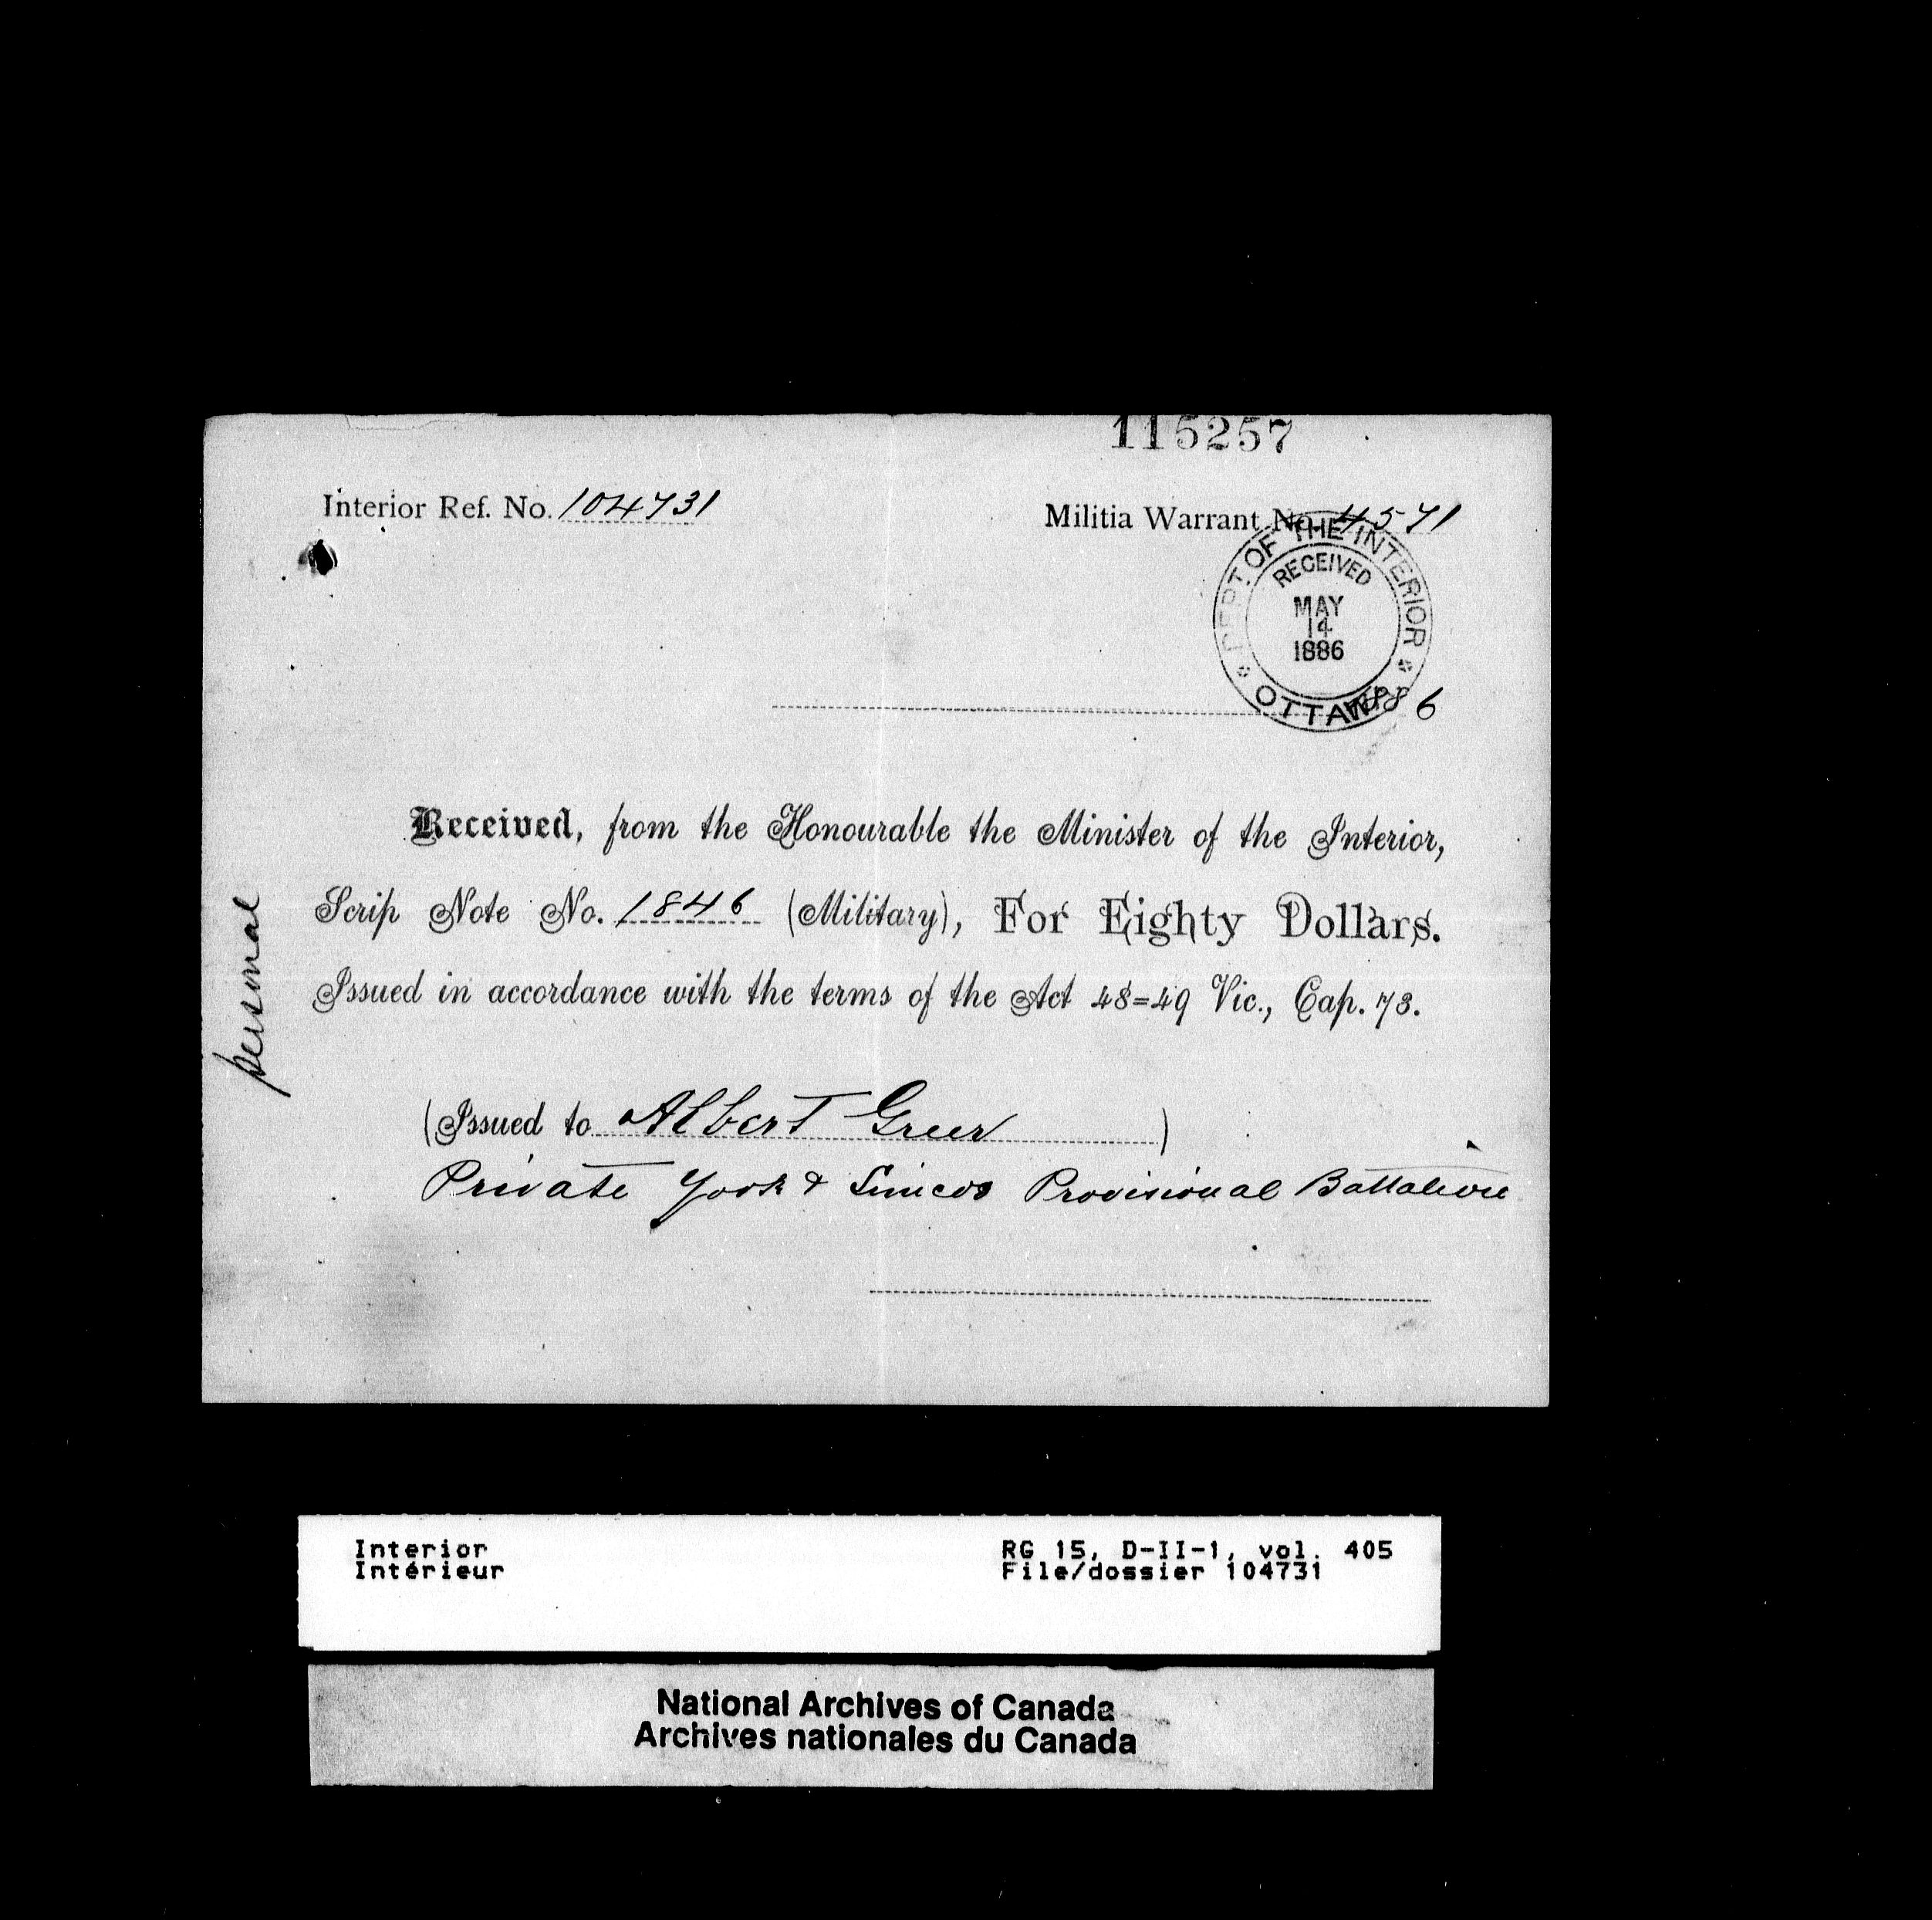 115257
Interior Ref. No. 104731
Militia Warrant No. 4571
DEPT. OF THE INTERIOR
RECEIVED
MAY
14
1886
OTTAWA
1886
Received, from the Honourable the Minister of the Interior,
Scrip Note No. 1846 (Military), For Eighty Dollars.
Issued in accordance with the terms of the Act 48=49 Vic., Cap. 73.
personal
(Issued to Albert Greer)
Private York & Simcoe Provisional Battalion
Interior RG 15, D-II-1, vol. 405
Intérieur File/dossier 104731
National Archives of Canada
Archives nationales du Canada